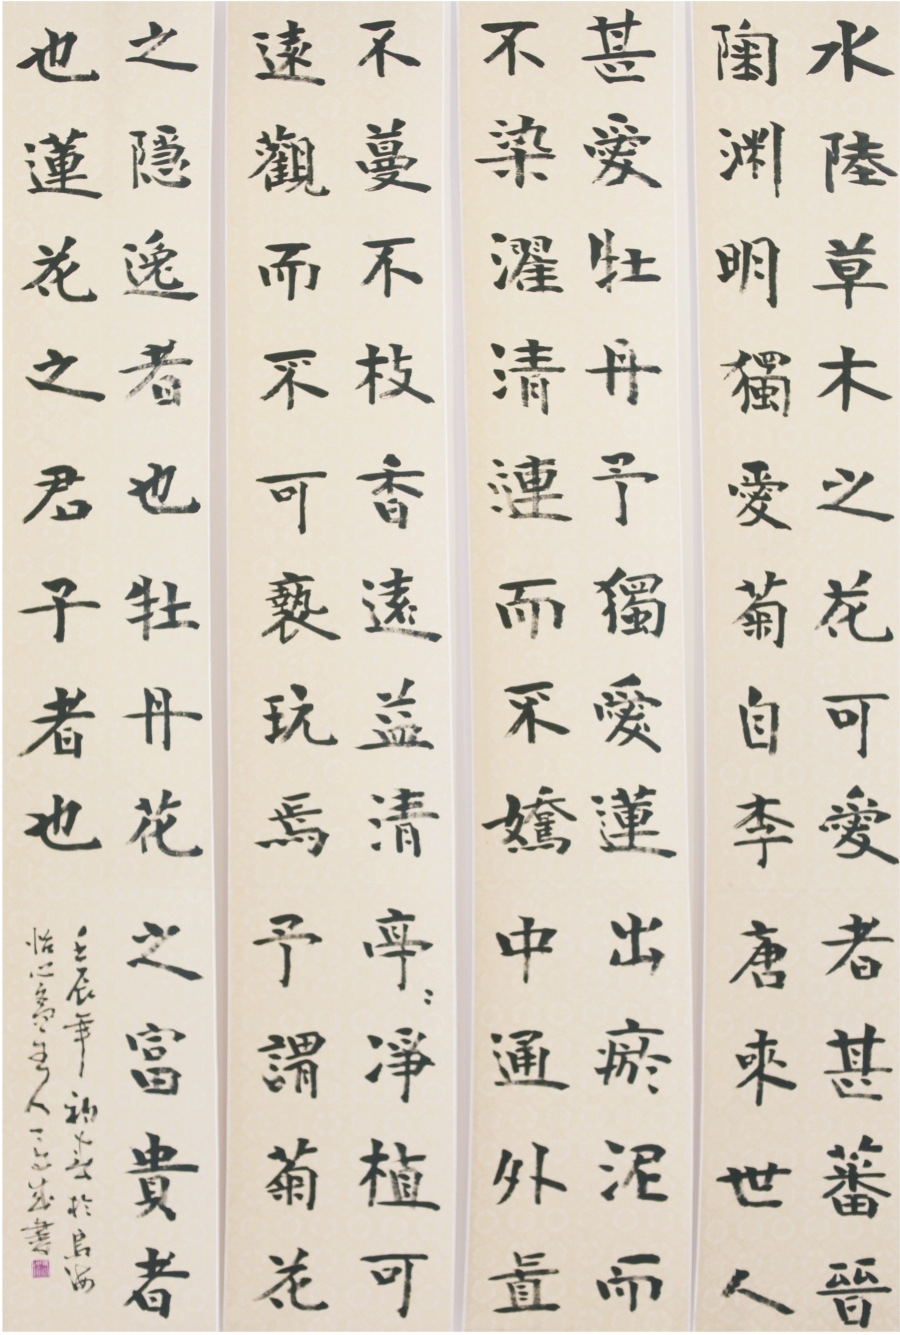 水陸草木之花可愛者甚蕃晉
陶渊明獨愛菊自李唐來世人
甚愛牡丹予獨愛蓮出瘀泥而
不染濯清漣而不嬌中通外直
不蔓不枝香遠益清亭〻凈植可
遠觀而不可褻玩焉予謂菊花
之隱逸者也牡丹花之富貴者
也蓮花之君子者也
壬辰年初於烏海
怡心齋主人王成書